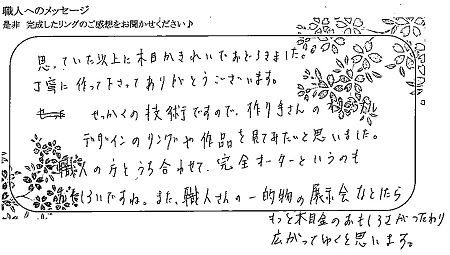 職人へのメッセージ
是非 完成したリングのご感想をお聞かせください♪
思っていた以上に木目がきれいでおどろきました。
丁寧に作って下さってありがとうございます。
せっかくの技術ですので、作り手さんのオリジナル
デザインのリングや作品を見てみたいと思いました。
職人の方とうち合わせて、完全オーダーというのも
おもしろいですね。また、職人さんの一的物の展示会などしたら
もっと木目金のおもしろさがつたわり
広がってゆくと思います。